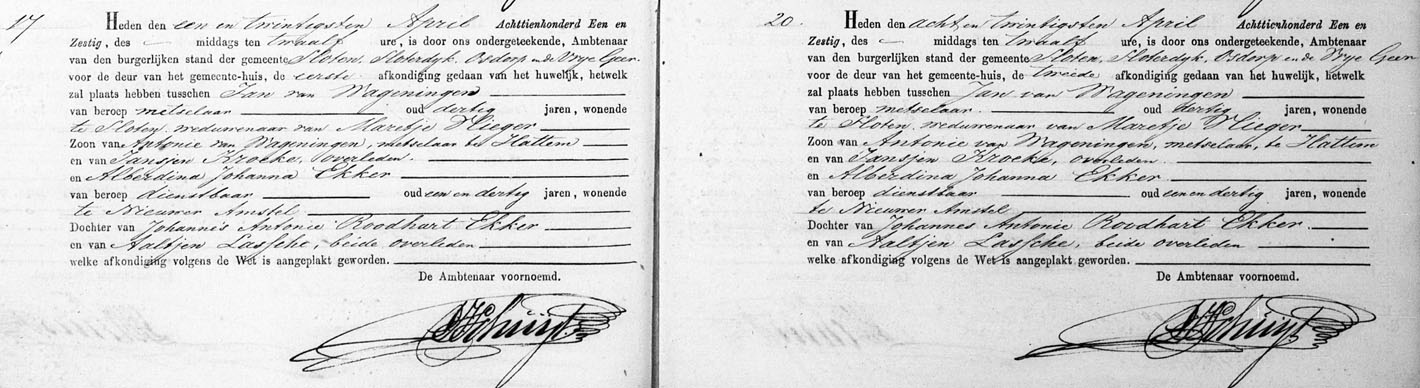 17 Heden den een en twintigsten April Achttienhonderd Een en
Zestig, des — middags ten twaalf ure, is door ons ondergeteekende, Ambtenaar
van den burgerlijken stand der gemeente Sloten, Sloterdyk, Osdorp en de Vrye Geer
voor de deur van het gemeente-huis, de eerste afkondiging gedaan van het huwelijk, hetwelk
zal plaats hebben tusschen Jan van Wageningen
van beroep metselaar oud dertig jaren, wonende
te Sloten, weduwenaar van Maretje Vlieger
Zoon van Antonie van Wageningen, metselaar te Hattem
en van Jansjen Kroeke, overleden
en Alberdina Johanna Ekker
van beroep dienstbaar oud een en dertig jaren, wonende
te Nieuwer Amstel
Dochter van Johannis Antonie Roodhart Ekker
en van Aaltjen Lassche, beide overleden
welke afkondiging volgens de Wet is aangeplakt geworden.
De Ambtenaar voornoemd.
20. Heden den acht en twintigsten April Achttienhonderd Een en
Zestig, des — middags ten twaalf ure, is door ons ondergeteekende, Ambtenaar
van den burgerlijken stand der gemeente Sloten, Sloterdyk, Osdorp en de Vrye Geer
voor de deur van het gemeente-huis, de tweede afkondiging gedaan van het huwelijk, hetwelk
zal plaats hebben tusschen Jan van Wageningen
van beroep metselaar oud dertig jaren, wonende
te Sloten, weduwenaar van Maretje Vlieger
Zoon van Antonie van Wageningen, metselaar, te Hattem
en van Jansjen Kroeke, overleden
en Alberdina Johanna Ekker
van beroep dienstbaar oud een en dertig jaren, wonende
te Nieuwer Amstel
Dochter van Johannes Antonie Roodhart Ekker
en van Aaltjen Lassche, beide overleden
welke afkondiging volgens de Wet is aangeplakt geworden.
De Ambtenaar voornoemd.